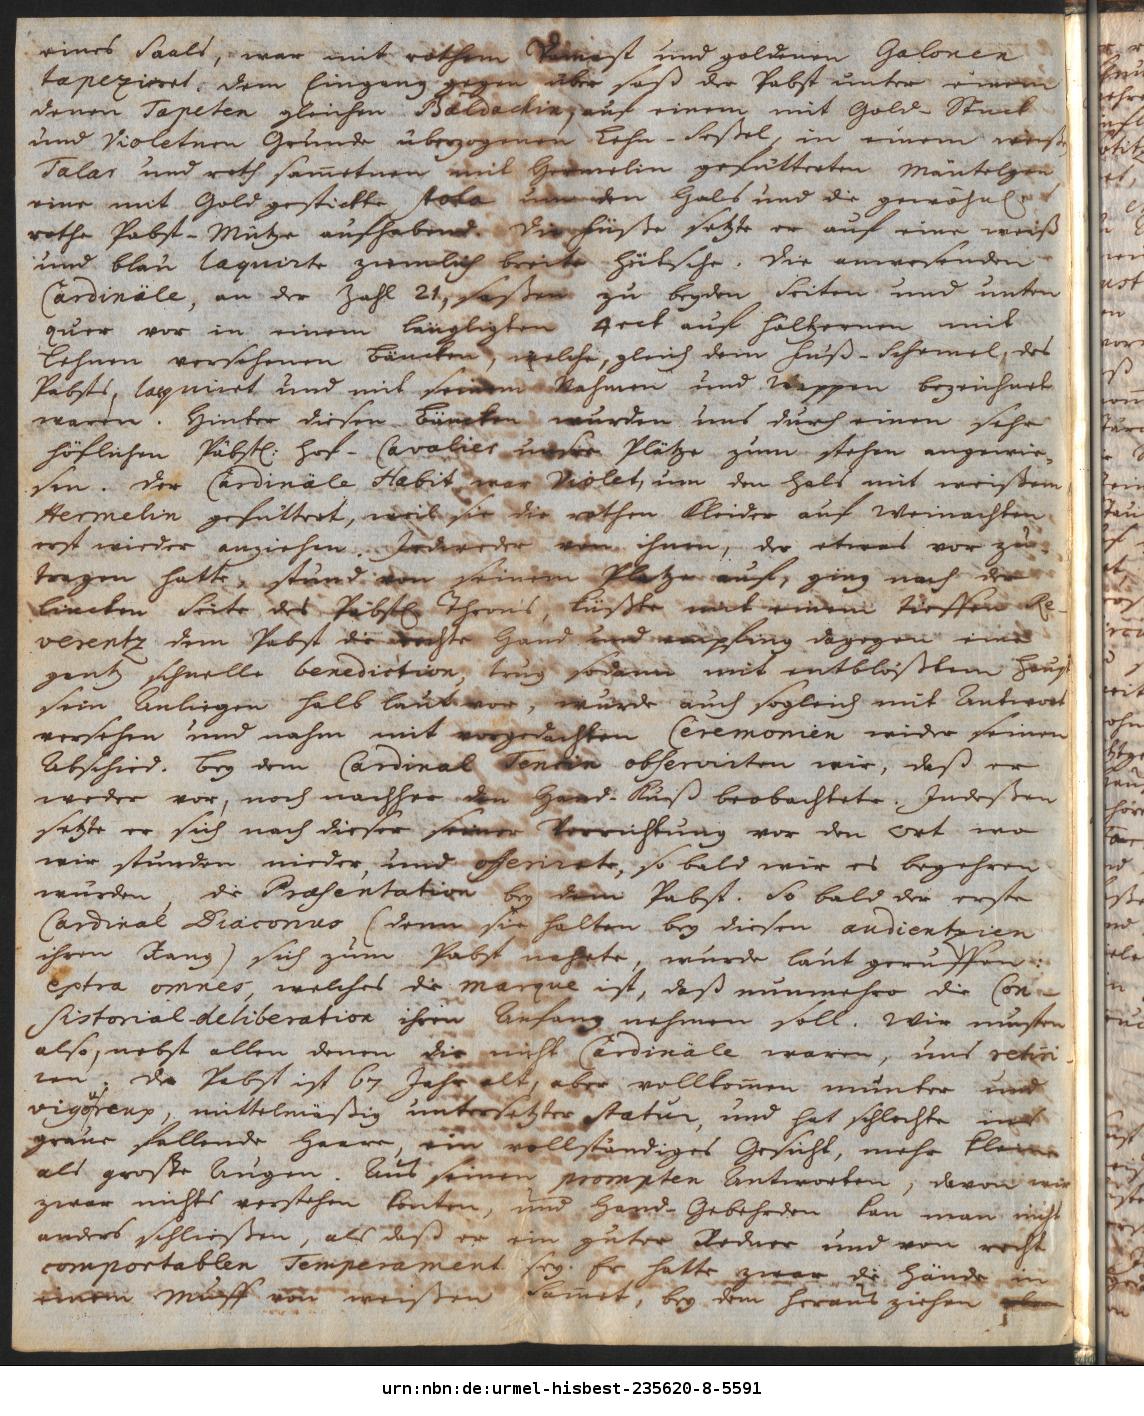 eines Saals, war mit rothem Damast und goldenen Galonen
tapezieret. dem Eingang gegen über saß der Pabst unter einem
denen Tapeten gleichen Baldachin, auf einem mit Gold-Stück
und Violetnen Grunde überzogenen Lehn-Seßel, in einem weiß,
Talar und roth sam̄etnen mit Hermelin gefütterten Mäntelgen
eine mit Gold gestickte stola um den Hals und die gewöhnl:
rothe Pabst-Mütze aufhabend. Die Füße setzte er auf eine weiß
und blau laquirte ziemlich breite Hütsche. Die anwesenden
Cardinäle, an der Zahl 21, saßen zu beyden Seiten und unten
quer vor in einem längligten 4eck auf höltzernen mit
Lehnen versehenen Bäncken, welche, gleich dem Fuß-Schemel, des
Pabsts, laquiret und mit seinem Nahmen und Wappen bezeichnet
waren. Hinter diesen Bäncken wurden uns durch einen sehr
höflichen Päbstl: Hof-Cavalier unsre Plätze zum stehen angewie-
sen. Der Cardinäle Habit war Violet, um den Hals mit weißem
Hermelin gefüttert, weil sie die rothen Kleider auf Weinachten
erst wieder anziehen. Jedweder von ihnen, der etwas vor zu-
tragen hatte, stund von seinem Platze auf, ging nach der
lincken Seite des Päbstl: Throns, küßte mit einem tieffen Re-
verentz dem Pabst die rechte Hand und empfing dagegen eine
gantz schnelle benediction, trug sodann mit entblößtem Haupt
sein Anliegen halb laut vor, wurde auch sogleich mit Antwort
versehen und nahm mit vorgedachten Ceremonien wider seinen
Abschied. Bey dem Cardinal Tencin observirten wir, daß er
weder vor, noch nachher den Hand-Kuß beobachtete. Indeßen
setzte er sich nach dieser seiner Verrichtung vor den Ort wo
wir stunden nieder, und offerirte, so bald wir es begehren
würden, die Præsentation bey dem Pabst. So bald der erste
Cardinal Diaconus (denn sie halten bey diesen audientzien
ihren Rang) sich zum Pabst nahete, wurde laut geruffen:
extra omnes, welches die marque ist, daß nunmehro die Con-
sistorial-deliberation ihren Anfang nehmen soll. Wir musten
also, nebst allen denen die nicht Cardinäle waren, uns retiri-
ren. Der Pabst ist 67 Jahr alt, aber vollkom̄en munter und
vigoureux, mittelmäßig untersetzter statur, und hat schlechte ins
graue fallende Haare, ein vollständiges Gesicht, mehr kleine
als große Augen. Aus seinen prompten Antworten, davon wir
zwar nichts verstehen konten, und Hand-Gebehrden kan man nicht
anders schließen, als daß er ein guter Redner und von recht
comportablen Temperament sey. Er hatte zwar die Hände in
einem Muff von weißen Sam̄et, bey dem heraus ziehen